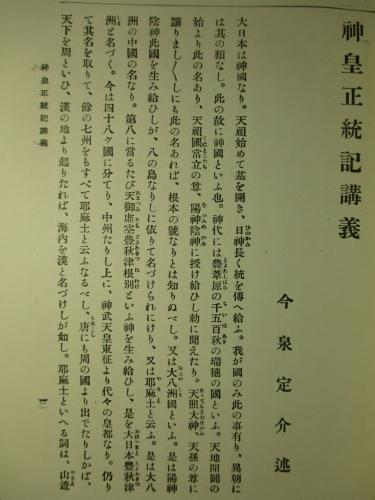 神皇正統記講義
今泉定介述
大日本は神國なり。天祖始めて基を開き、日神長く統を傳へ給ふ。我が國のみ此の事有り、異朝に
は其の類なし。此の故に神國といふ也。神代には豊葦原の千五百秋の瑞穂の國といふ。天地開闢の
始より此の名あり、天祖國常立の尊、陽神陰神に授け給ひし勅に聞えたり。天照大神、天孫の尊に
讓りまし〳〵しにも此の名あれば、根本の號なりとは知りぬべし。又は大八洲國といふ。是は陽神
陰神此國を生み給ひしが、八の島なりしに依りて名づけられにけり、又は耶麻土と云ふ。是は大八
洲の中國の名なり。第八に當るたび天御虚空豊秋津根別といふ神を生み給ひし、是を大日本豊秋津
洲と名づく。今は四十八ヶ國に分てり、中州たりし上に、神武天皇東征より代々の皇都なり。仍り
て其名を取りて、餘の七州をもすべて耶麻土と云ふなるべし、唐にも周の國より出でたりしかば、
天下を周といひ、漢の地より起りたれば、海内を漢と名づけしが如し。耶麻土といへる詞は、山迹
神皇正統記講義